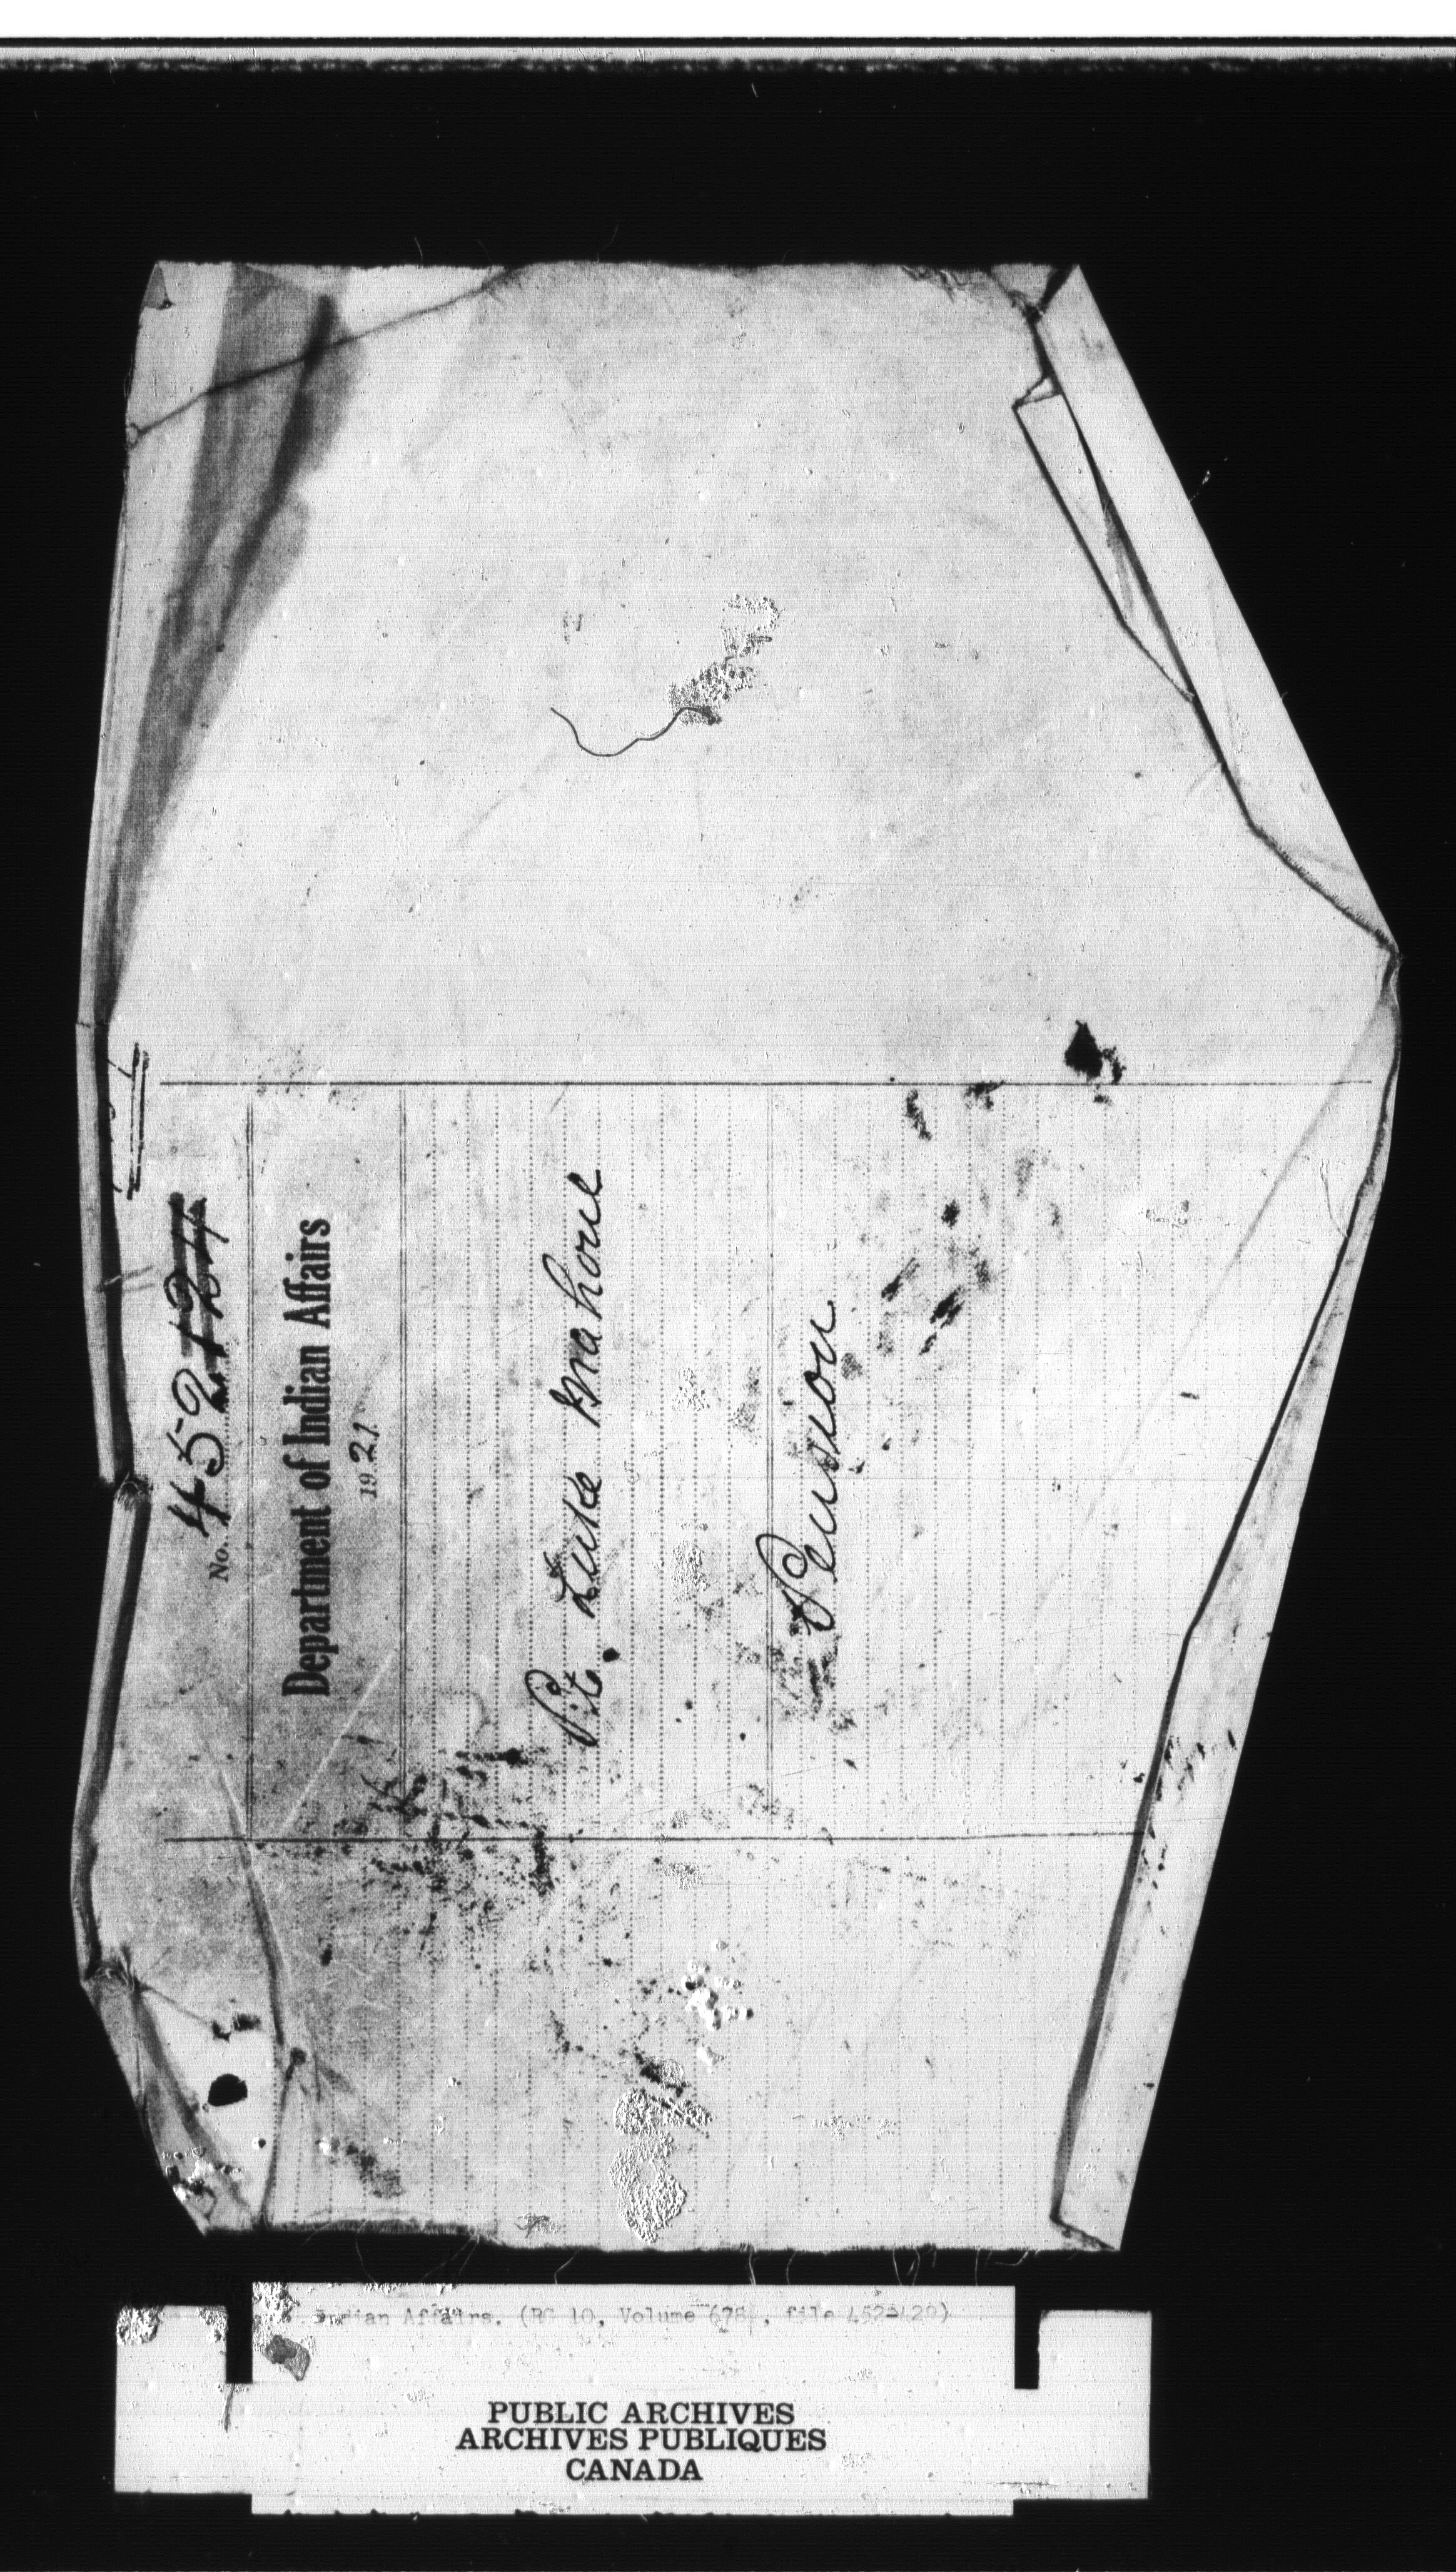 No. 452-124
Department of Indian Affairs
1921
Pte. Luke Mahone
Pension
Indian Affairs. (RG 10, Volume 678, file 452-420)
PUBLIC ARCHIVES
ARCHIVES PUBLIQUES
CANADA